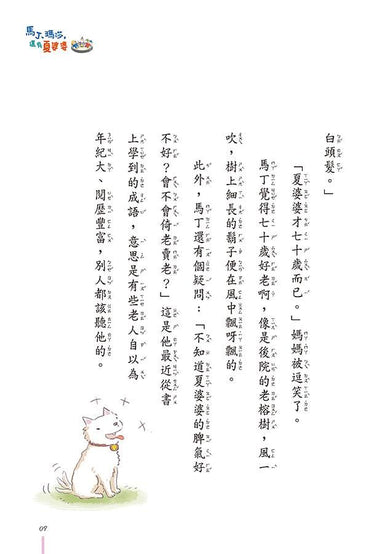 馬丁、瑪莎，
還有夏婆婆
白頭髮。」
「夏婆婆才七十歲而已。」媽媽被逗笑了。
馬丁覺得七十歲好老啊，像是後院的老榕樹，風一
吹，樹上細長的鬍子便在風中飄呀飄的。
此外，馬丁還有個疑問：「不知道夏婆婆的脾氣好
不好？會不會倚老賣老？」這是他最近從書
上學到的成語，意思是有些老人自以為
年紀大、閱歷豐富，別人都該聽他的。
09